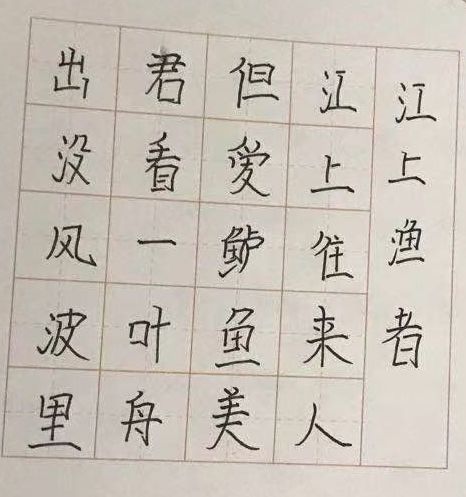 江上渔者
江上往来人
但爱鲈鱼美
君看一叶舟
出没风波里